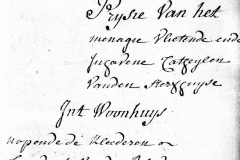 Prysie Van het
menagie Vleetende ende
Ingavene Catheylen
vanden Sterfhuyse
Int Woonhuys
nopende de Kleederen